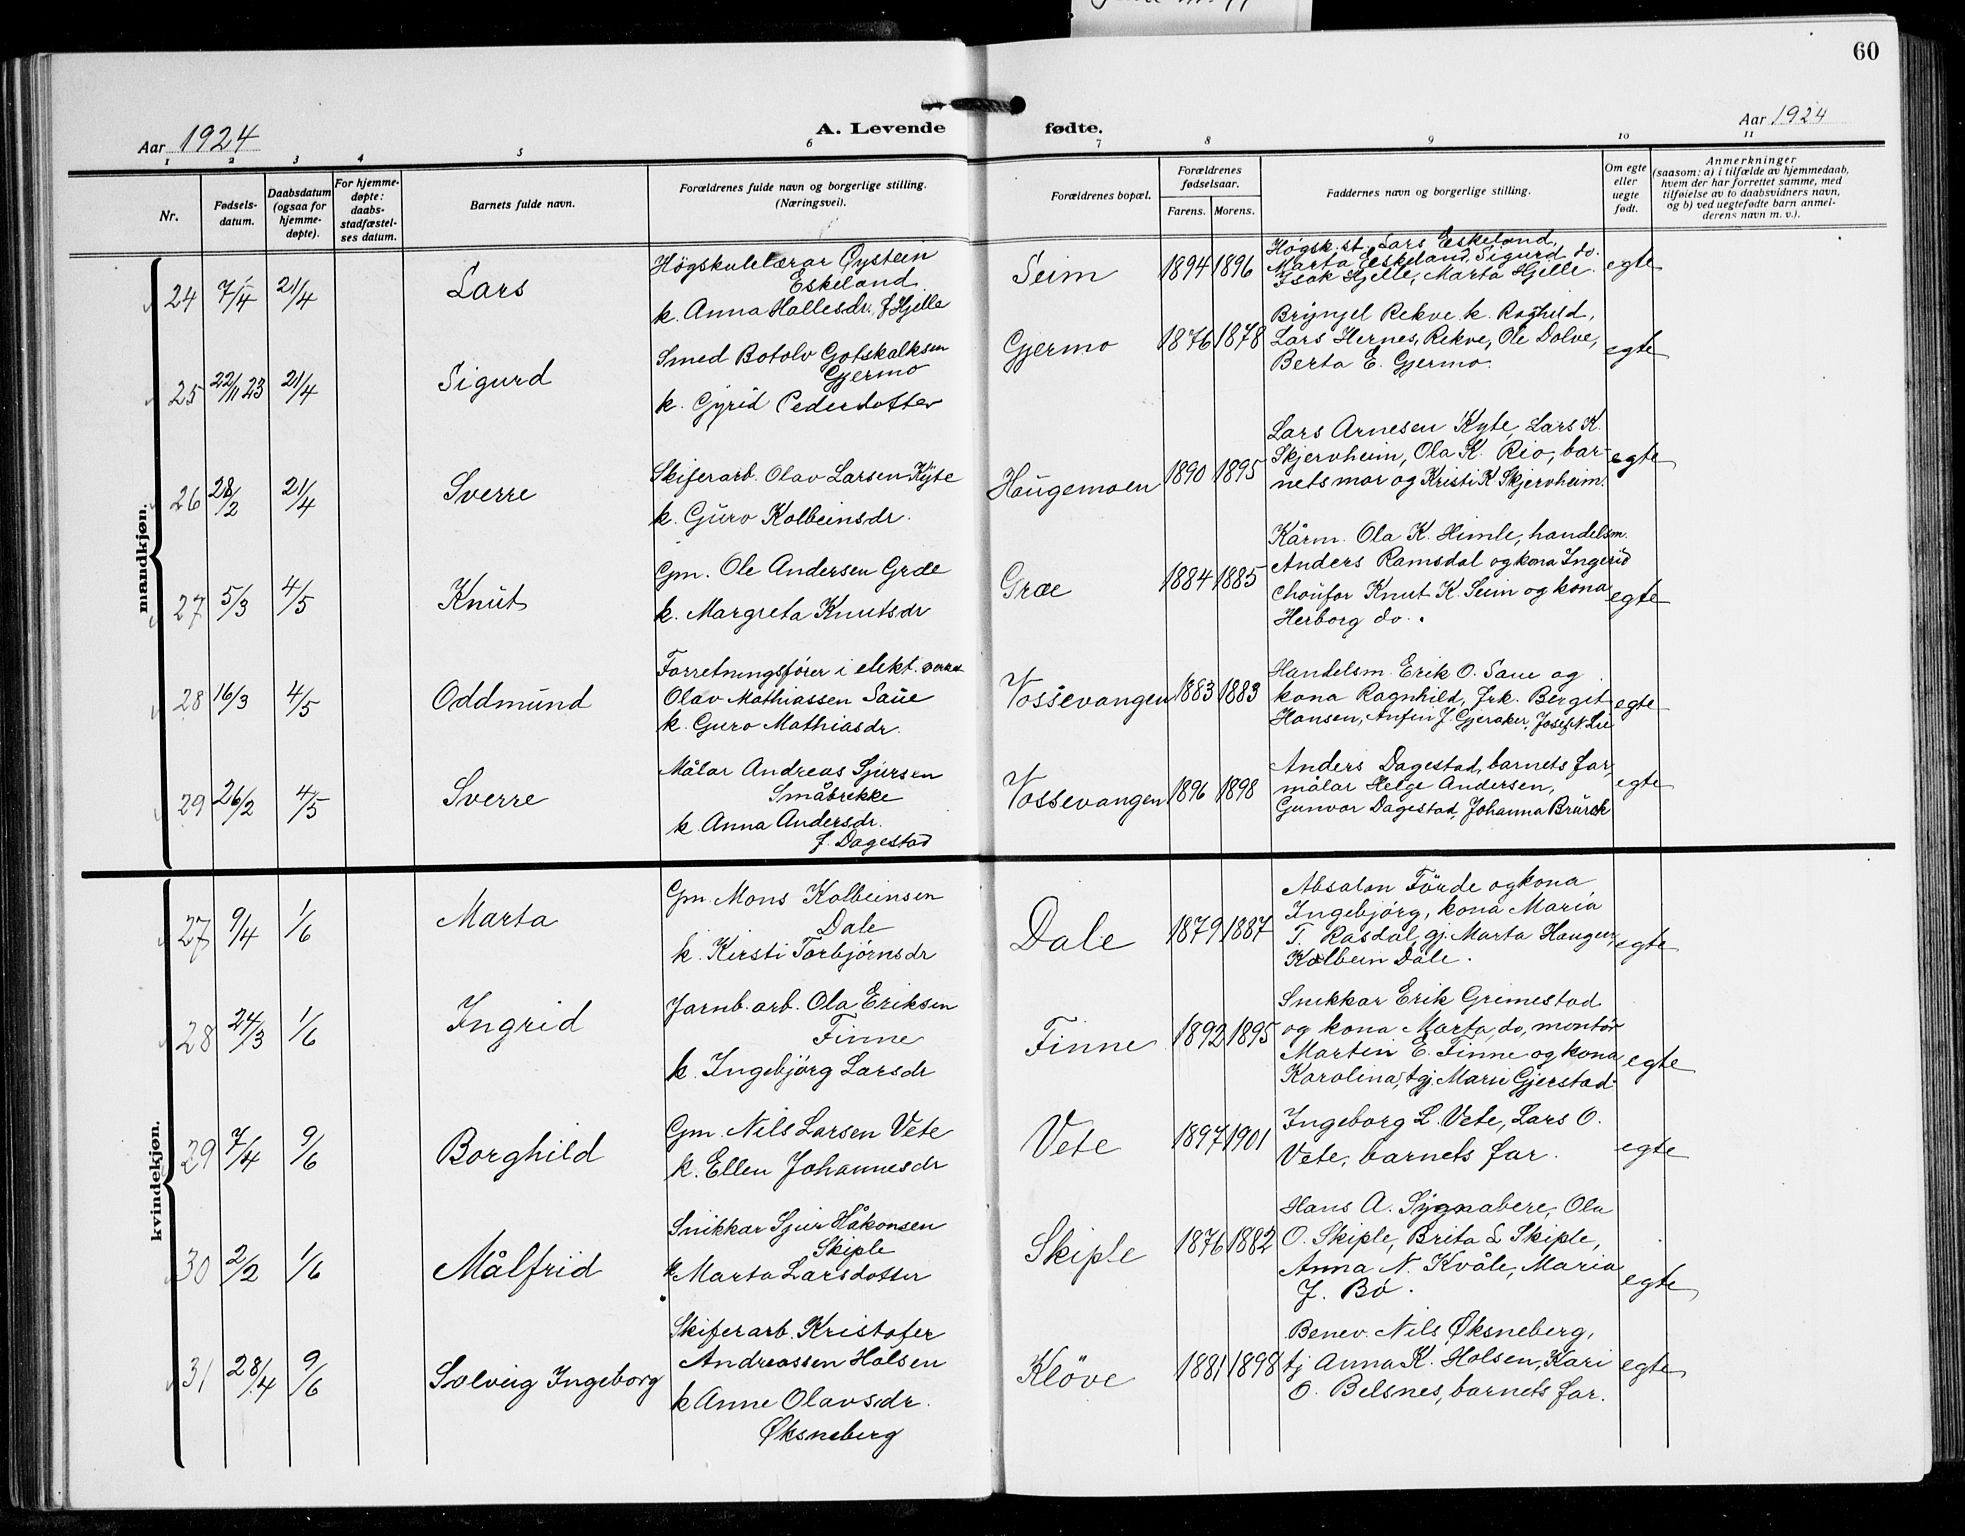 60
Aar 1924
A. Levende fødte.
Aar 1924
1 2 3 4 5 6 7 8 9 10 11
Nr.
Fødsels-
datum.
Daabsdatum
(ogsaa for
hjemme-
døpte).
For hjemme-
døpte:
daabs-
stadfæstel-
ses datum.
Barnets fulde navn.
Forældrenes fulde navn og borgerlige stilling.
(Næringsvei).
Forældrenes bopæl.
Forældrenes
fødselsaar.
Farens. Morens.
Faddernes navn og borgerlige stilling.
Om egte
eller
uegte
født.
Anmerkninger
(saasom: a) i tilfælde av hjemmedaab,
hvem der har forrettet samme, med
tilføielse av to daabsvidners navn,
og b) ved uegtefødte barn anmel-
derens navn m. v.).
mandkjøn.
24 7/4 21/4 Lars
Høgskulelærar Øystein
Eskeland
k. Anna Hallesdr. f Hjelle
Seim 1894 1896
Høgsk.st. Lars Eskeland,
Marta Eskeland, Sigurd do.
Isak Hjelle, Marta Hjelle.
egte
25 22/11 23 21/4 Sigurd
Smed Botolv Gotskalksen
Gjermo
k. Gyrid Pedersdotter
Gjermo 1876 1878
Brynjel Rekve k. Raghild,
Lars Hernes, Rekve, Ole Dolve,
Berta E. Gjermo.
egte
26 28/2 21/4 Sverre
Skiferarb. Olav Larsen Kyte
k. Guro Kolbeinsdr.
Haugemoen 1890 1895
Lars Arnesen Kyte, Lars K.
Skjervheim, Ola K. Rio, bar-
nets mor og Kristi K Skjervheim.
egte
27 5/3 4/5 Knut
Gm. Ole Andersen Græe
k. Margreta Knutsdr
Græe 1884 1885
Kårm. Ola K. Himle, handelsm.
Anders Ramsdal og kona Ingerid
choufør Knut K. Seim og kona
Herborg do.
egte
28 16/3 4/5 Oddmund
Forretningsfører i elekt. verket
Olav Mathiassen Saue
k. Guro Mathiasdr.
Vossevangen 1883 1883
Handelsm. Erik O. Saue og
kona Ragnhild, frk. Bergit
Hansen, Anfin J. Gjeraker, Josef N. Lie
egte
29 26/2 4/5 Sverre
Målar Andreas Sjursen
Småbrekke
k. Anna Andersdr.
f. Dagestad
Vossevangen 1896 1898
Anders Dagestad, barnets far,
målar Helge Andersen,
Gunvor Dagestad, Johanna
egte
kvindekjøn.
27 9/4 1/6 Marta
Gm. Mons Kolbeinsen
Dale
k. Kirsti Torbjørnsdr
Dale 1879 1887
Absalon Förde og kona
Ingebjörg, kona Maria
T. Rasdal, gj. Marta Haugen,
Kolbein Dale.
egte
28 24/3 1/6 Ingrid
Jarnb. arb. Ola Eriksen
Finne
k. Ingebjörg Larsdr
Finne 1892 1895
Snikkar Erik Grimestad
og kona Marta, do, montör
Martin E. Finne og kona
Karolina, tgj. Mari Gjerstad.
egte
29 7/4 9/6 Borghild
Gm. Nils Larsen Vete
k. Ellen Johannesdr
Vete 1897 1901
Ingeborg L. Vete, Lars O.
Vete, barnets far.
egte
30 2/2 1/6 Målfrid
Snikkar Sjur Håkonsen
Skiple
k. Marta Larsdotter
Skiple 1876 1882
Hans A. Sygnabere, Ola
O. Skiple, Brita L Skiple,
Anna N. Kvåle, Maria
J. Bö.
egte
31 28/4 9/6 Solveig Ingeborg
Skiferarb. Kristofer
Andreassen Holsen
k Anne Olavsdr.
Øksneberg
Klöve 1881 1898
Benev. Nils Øksneberg,
tj Anna K. Holsen, Kari
O. Belsnes, barnets far.
egte